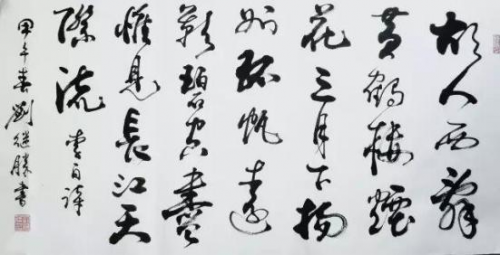 故人西辭
黄鶴樓煙
花三月下揚
州孤帆遠
影碧空盡
惟見長江天
際流 李白詩
甲午春劉継勝書